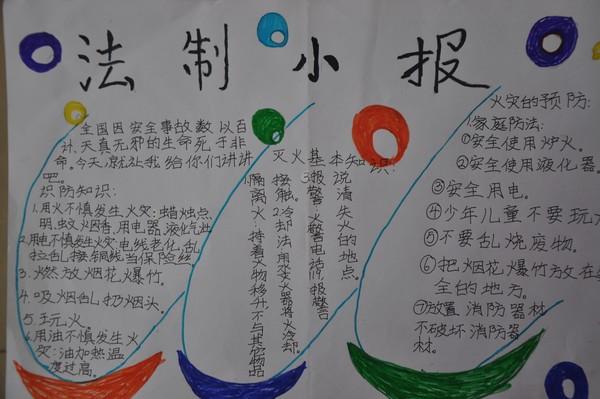 法制小报
全国因安全事故数以百
计,天真无邪的生命死于非
命。今天,就让我给你们讲讲
吧。
识防知识:
1.用火不慎发生火灾:蜡烛点
明,蚊火烟香,用电器液化气灶
2.用电不慎发生火灾:电线老化,乱
拉乱接,铜线当保险丝
3.燃放烟花爆竹。
4.吸烟乱扔烟头。
5.玩火。
6.用油不慎发生火
灾:油加热温
度过高。
灭火基本知识:
1.隔离火
持着火物移升,不与其它物品
接触。
2.冷却法用灭火器将火冷却。
3.报警
火警电话119,报警
说清失火的地点。
火灾的预防:
1.家庭防法:
①安全使用炉火。
②安全使用液化器。
③安全用电。
④少年儿童不要玩
⑤不要乱烧废物。
⑥把烟花爆竹放在
全的地方。
⑦放置消防器材
不破坏消防器
材。